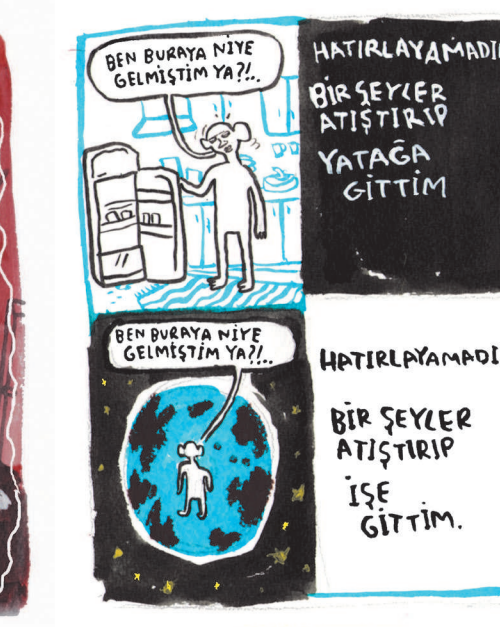 BEN BURAYA NİYE
GELMİŞTİM YA?!..
HATIRLAYAMADI
BİR ŞEYLER
ATIŞTIRIP
YATAĞA
GİTTİM
BEN BURAYA NİYE
GELMİŞTİM YA?!..
HATIRLAYAMADI
BİR ŞEYLER
ATIŞTIRIP
İŞE
GİTTİM.